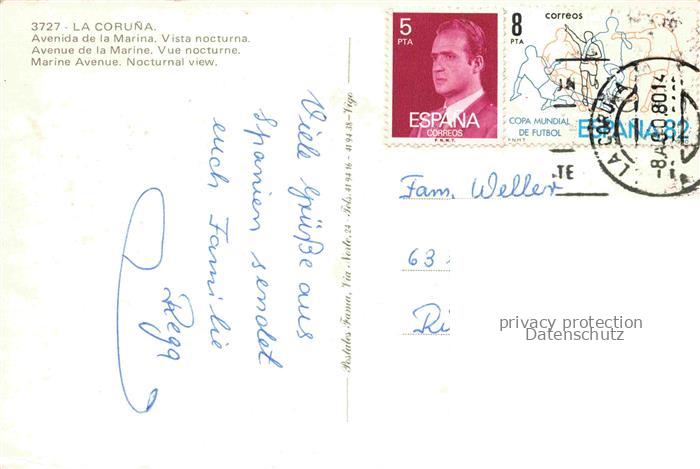 3727 - LA CORUÑA.
Avenida de la Marina. Vista nocturna.
Avenue de la Marine. Vue nocturne.
Marine Avenue. Nocturnal view.
Viele Grüße aus
Spanien sendet
euch Familie
Postales Fama, Vía-Norte, 24 - Tel. 41 94 16 - 41 94 38 - Vigo
5
PTA
ESPAÑA
CORREOS
F.N.M.T.
8
PTA
correos
COPA MUNDIAL
DE FUTBOL
ESPAÑA 82
F N M T
LA CORUÑA
-8.AGO.80.14
TE
Fam. Weller
63
Ri
privacy protection
Datenschutz